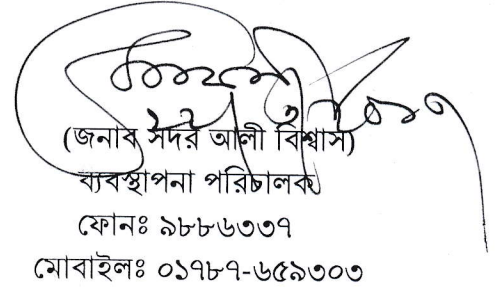 (জনাব সদর আলী বিশ্বাস)
ব্যবস্থাপনা পরিচালক
ফোনঃ ৯৮৮৬৩৩৭
মোবাইলঃ ০১৭৮৭-৬৫৯৩০৩